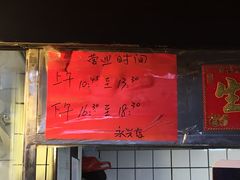 营业时间
上午10:45至13:30
下午16:30至18:30
永兴店
生